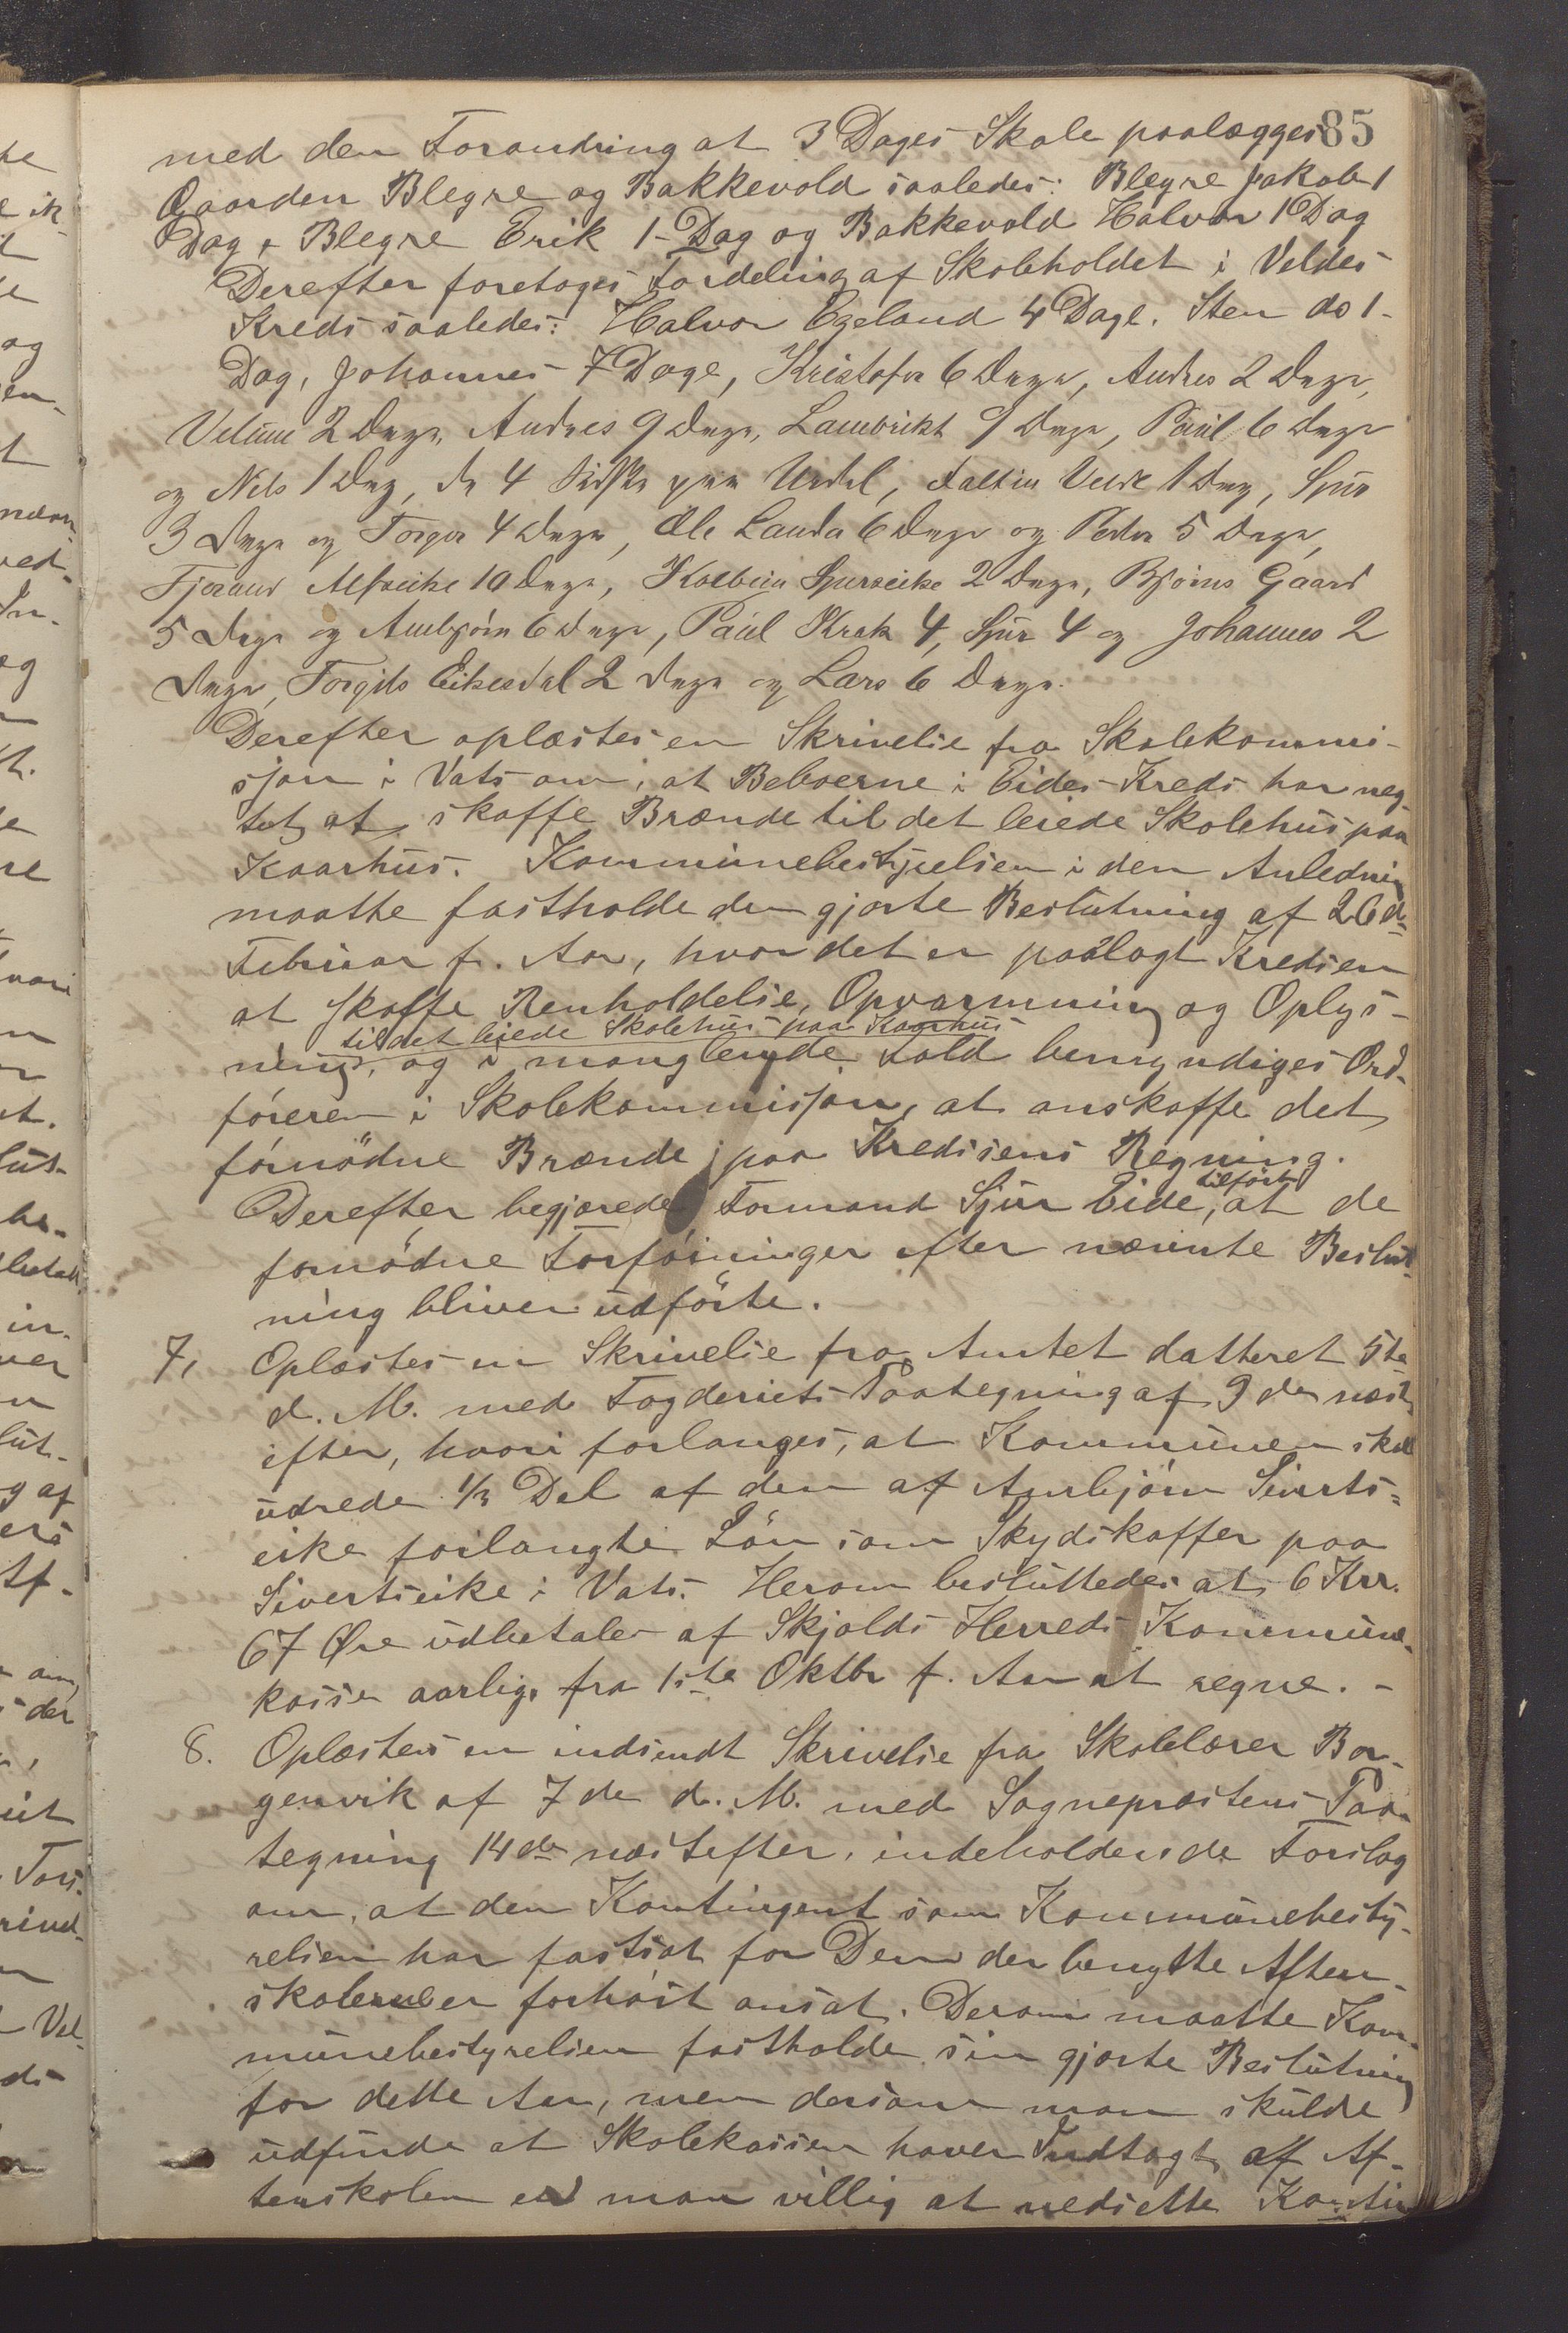 85
med den Forandring at 3 Dages Skole paalægges
Gaarden Blegre og Bakkevold saaledes: Blegre Jakob 1
Dag, Blegre Erik 1 Dag og Bakkevold Halvor 1 Dag
Derefter foretoges Fordeling af Skoleholdet i Veldes
Kreds saaledes: Halvor Egeland 4 Dage. Sten do 1
Dag, Johannes 7 Dage, Kristofer 6 Dage, Andres 2 Dage,
2 Dage, Andres 9 Dage, Lambrikt 9 Dage, Paul 6 Dage
og Nils 1 Dag, de 4 sidste paa, Velde 1 Dag, Sjur
3 Dage og Torger 4 Dage, Ole Landa 6 Dage og Peder 5 Dage,
Tjerand Alfseike 10 Dage, Kolbein Sjurseike 2 Dage, Bjørns Gaard
5 Dage og Ambjörn 6 Dage, Paul Krak 4, Sjur 4 og Johannes 2
Dage, Torgils Eikesdal 2 Dage og Lars 6 Dage.
Derefter oplæstes en Skrivelse fra Skolekommi-
sjon i Vats om, at Beboerne i Eides Kreds har neg-
tet at skaffe Brænde til det leiede Skolehus paa
Kaarhus. Kommunebestyrelsen i den Anledning
maatte fastholde den gjorte Beslutning af 26de
Februar f. Aar, hvor det er paalagt Kredsen
at skaffe Renholdelse, Opvarmning og Oplys-
til det leiede Skolehus paa Kaarhus
ning, og i manglende Fald bemyndiges Ord-
føreren i Skolekommisjon, at anskaffe det
fornödne Brænde paa Kredsens Regning.
tilført
Derefter begjærede Formand Sjur Eide, at de
fornödne Forføininger efter nævnte Beslut-
ning bliver udförte.
7, Oplæstes en Skrivelse fra Amtet datteret 5te
d. M. med Fogderiets Paategning af 9de næst
efter, hvori forlanges, at Kommunen skal
udrede 1/3 Del af den af Ambjörn Siverts=
eike forlangte Lön som Skydskaffer paa
Sivertseike i Vats. Herom besluttedes at 6 Krr.
67 Øre udbetales af Skjolds Herreds Kommune-
kasse aarlig fra 1ste Oktbr f. Aar at regne. -
8. Oplæstes en indsendt Skrivelse fra Skolelærer Bor-
genvik af 7de d. M. med Sognepræstens Paa-
tegning 14de næstefter, indeholdende Forslag
om, at den Kontingent som Kommunebesty-
relsen har fastsat for Dem der benytte Aften-
skolerne er forhöit ansat. Derom maatte Kom-
munebestyrelsen fastholde sin gjorte Beslutning
for dette Aar, men dersom man skulde
udfinde at Skolekassen haver Indtægt af Af-
tenskolen er man villig at nedsette Kontin